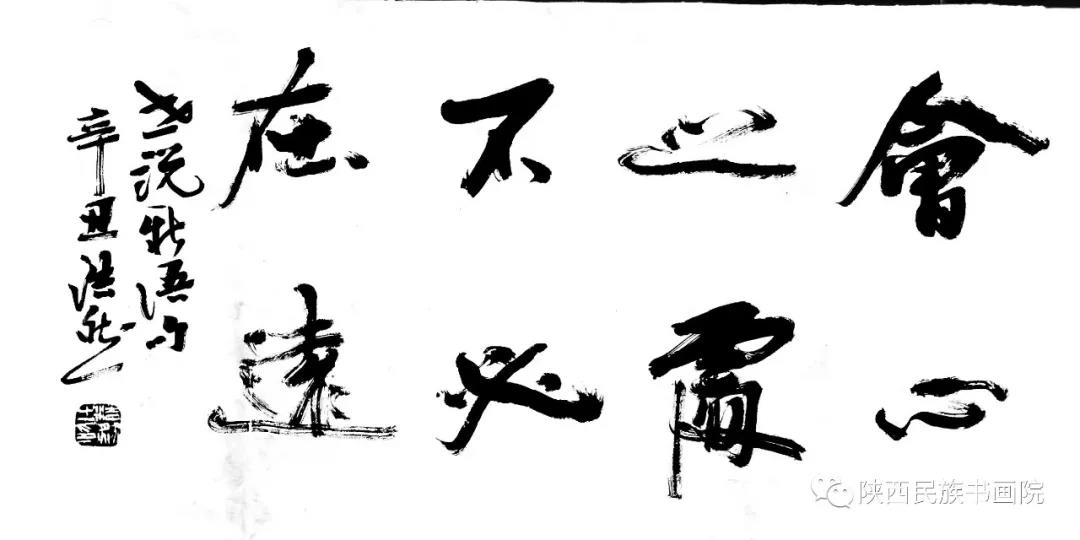 會心
之處
不必
在遠
世説新語句
辛丑浩然
陕西民族书画院